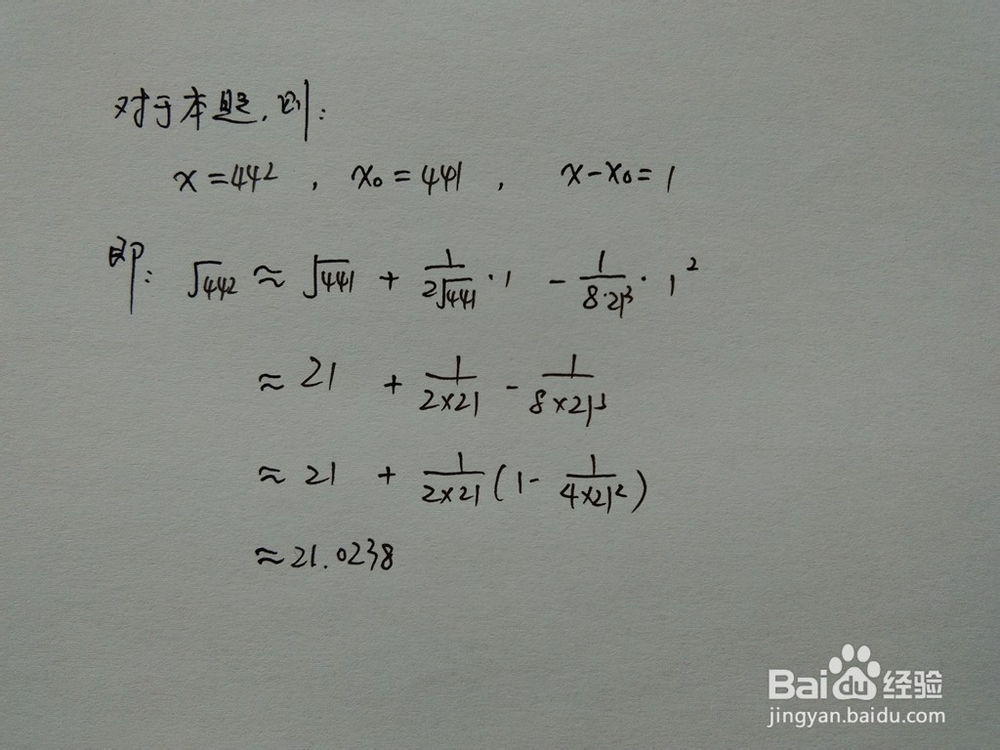 对于本题,则:
x=442 , x₀=441 , x-x₀=1
即: √442 ≈ √441 + 1/(2√441)·1 - 1/(8·21³)·1²
≈ 21 + 1/(2×21) - 1/(8×21³)
≈ 21 + 1/(2×21)(1- 1/(4×21²))
≈21.0238
Baidu经验
jingyan.baidu.com